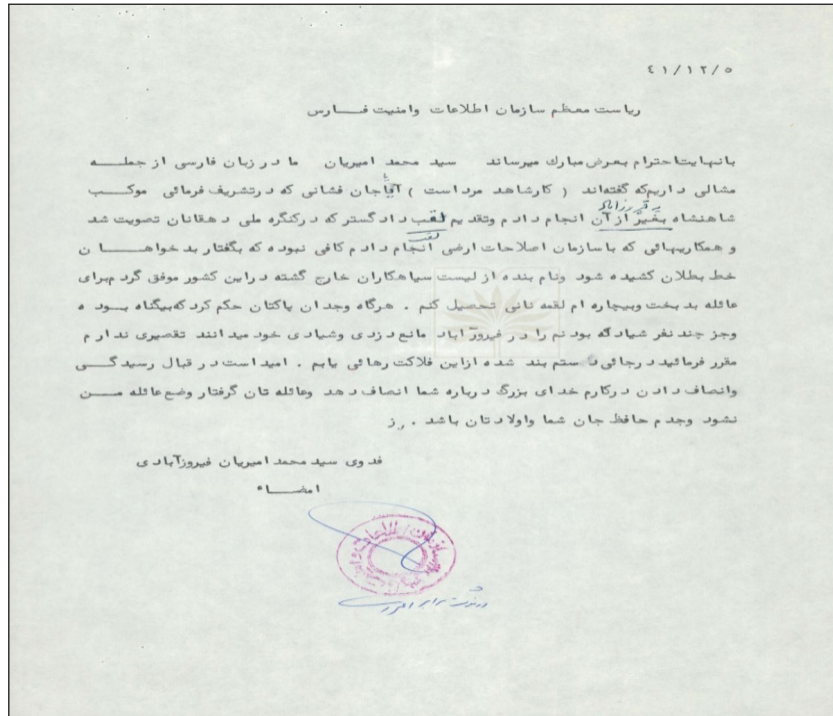 ٤١/١٢/٥
ریاست معظم سازمان اطلاعات وامنیت فـــارس
بانهایتاحترام بعرض مبارك میرساند سید محمد امیریان ما در زبان فارسی از جملـــه
مثالی داریمکه گفته‌اند ( کارشاهد مرد است ) آیا جان فشانی که درتشریف فرمائی موکــب
شاهنشاه بغیر از آن انجام دادم وتقدیم لقب دادگستر که درکنگره ملی دهقانان تصویت شد
و همکاریهائی که باسازمان اصلاحات ارضی انجام دادم کافی نبوده که بگفتار بدخواهـــان
خط بطلان کشیده شود ونام بنده از لیست سیاهکاران خارج گشته دراین کشور موفق گردم‌برای
عائله بدبخت وبیچاره ام لقمه نانی تحصیل کنم . هرگاه وجدان پاکتان حکم کرد که‌بیگناه بــوده
وجز چند نفر شیاد که بودنم را در فیروزآباد مانع دزدی وشیادی خود میدانند تقصیری ندارم
مقرر فرمائید درجائی دستم بند شده ازاین فلاکت رهائی یابم . امیداست در قبال رسیدگــی
وانصاف دادن درکارم خدای بزرگ درباره شما انصاف دهد وعائله تان گرفتار وضع عائله مــن
نشود وجدم حافظ جان شما واولادتان باشد . ز
فدوی سید محمد امیریان فیروزآبادی
امضـــاء
رونوشت برابر اصل است